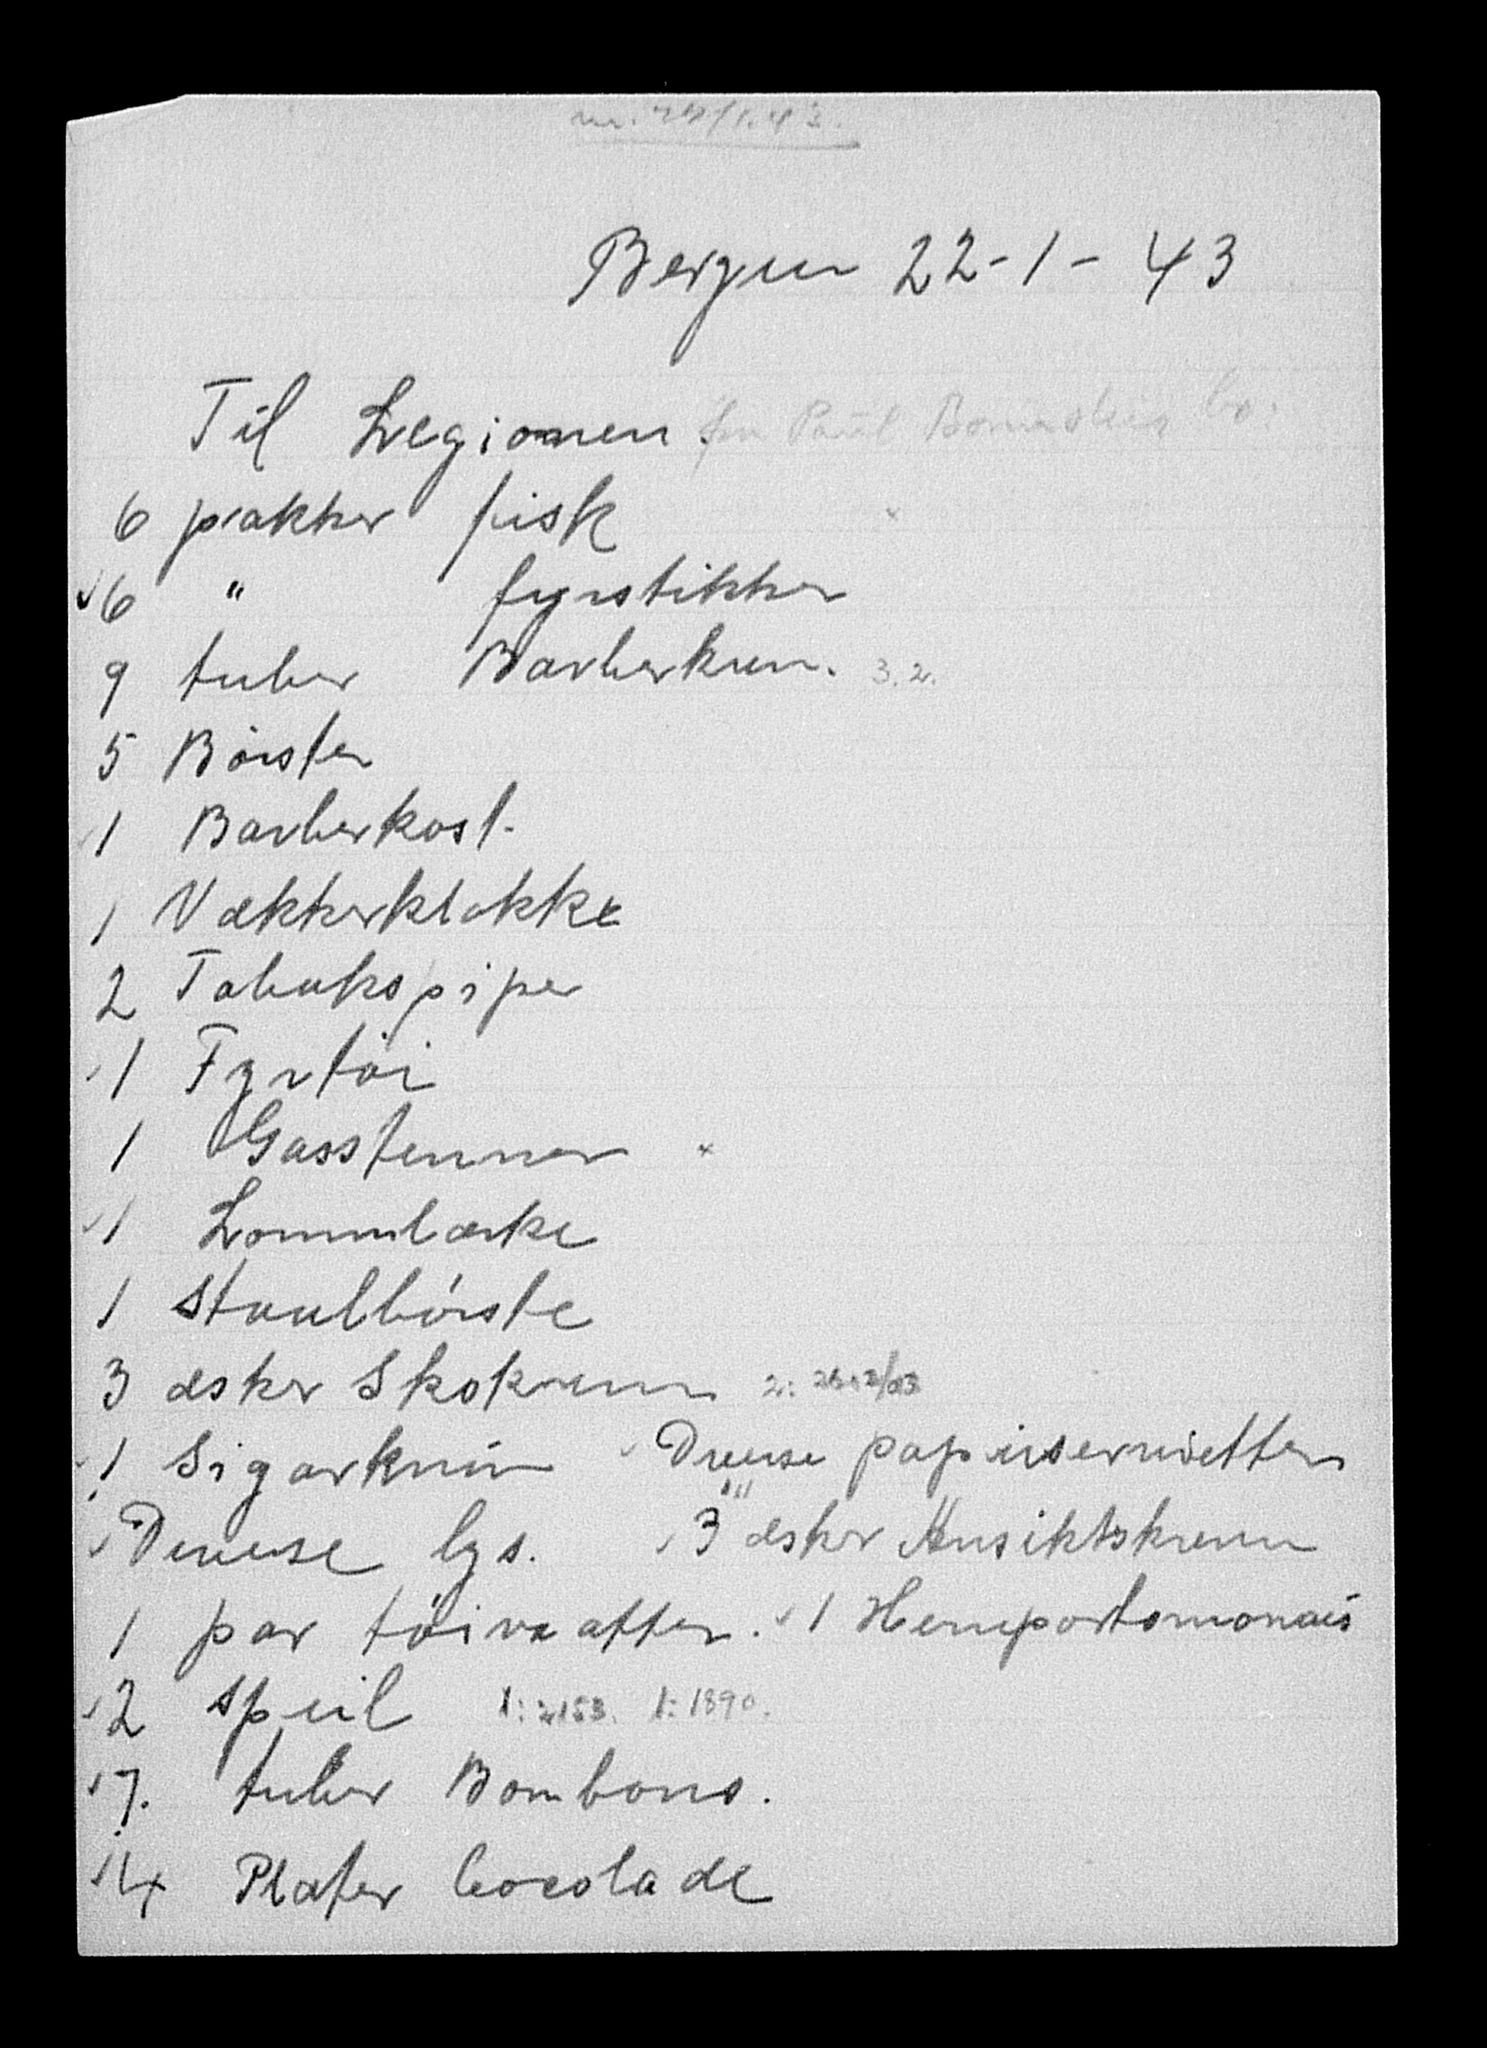 Bergen 22-1-43
Til Legionen. fra Paul bo:
6 pakker fisk
6 " fyrstikker
9 tuber Barberkrem. 3.2.
5 Börster
1 Barberkost.
1 Vækkerklokke
2 Tobakspiper
1 Fyrtöi
1 Gasstenner
1 Lommelærke
1 Staalbörste
3 æsker Skokrem 2:
1 Sigarkrüin Diverse papirservietter
Diverse lys. 3 æsker Ansiktskrem
1 par töivaatter. 1 Herreportomonais
2 speil 1: 2153. 1: 1890.
7. tuber Bombons.
14 Plater Cocolade